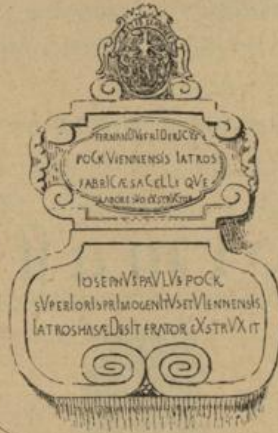 FERNANDVS FRIDERICVS
POCK VIENNENSIS IATROS
FABRICÆ SACELLI QVE
LABORE SVO EXSTRVCTOR
IOSEPHVS PAVLVS POCK
SVPERIORIS PRIMOGENITVS ET VIENNENSIS
IATROS HAS ÆDES ITERATO EXSTRVXIT